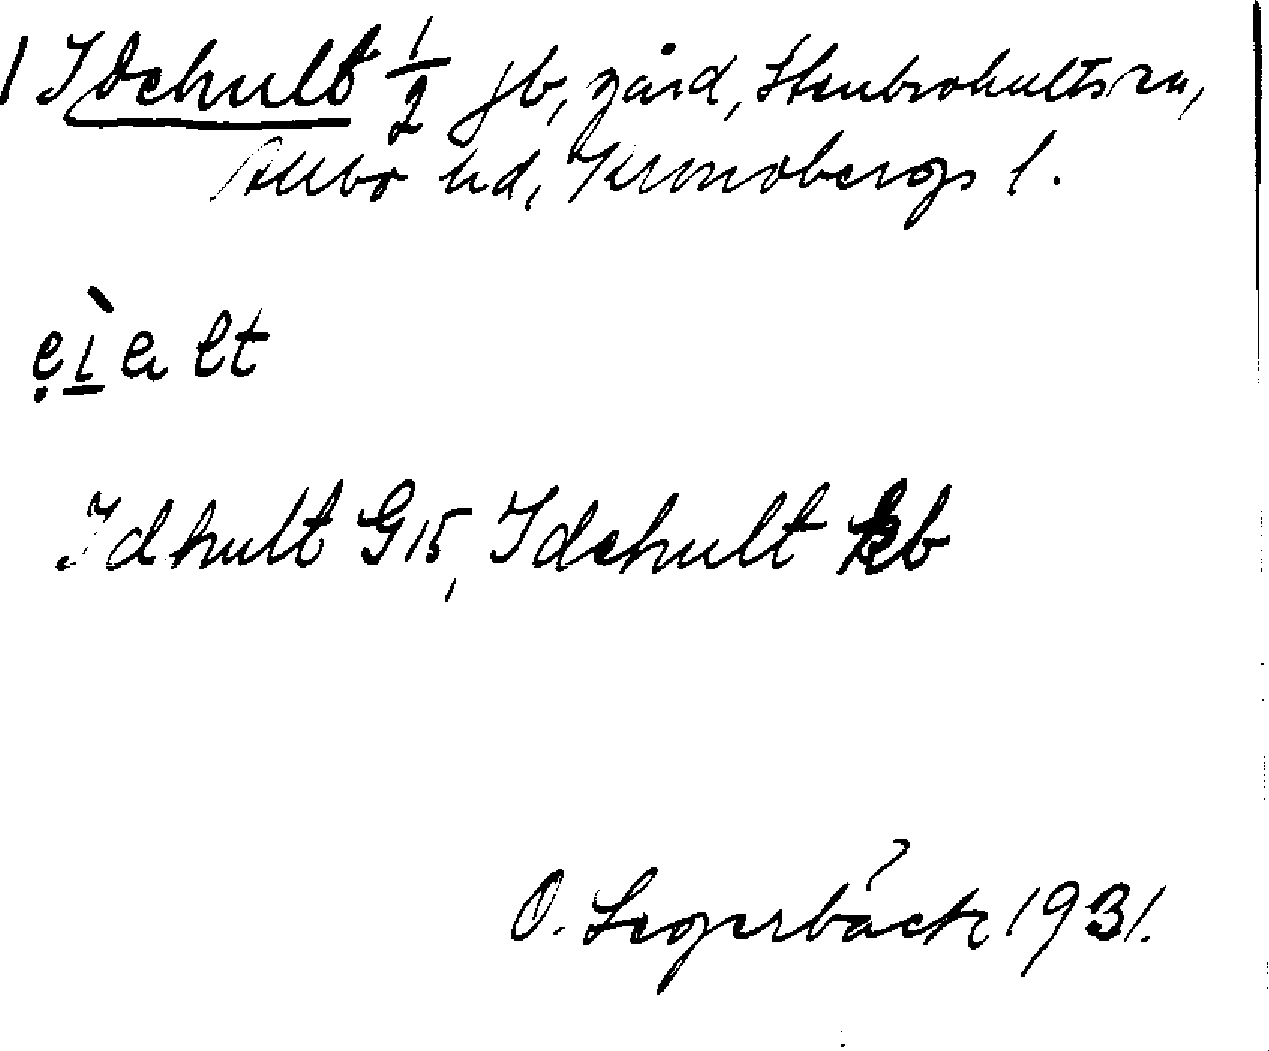 1 Idehult 1/2 jb, gård, Stenbrohults sn,
Allbo hd, Kronobergs l.
Idhult G 15, Idehult kb
O. Segerbäck 1931.